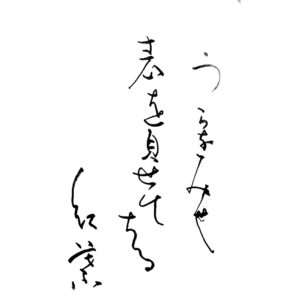 うらをみせ
表を見せて
ちる
紅葉